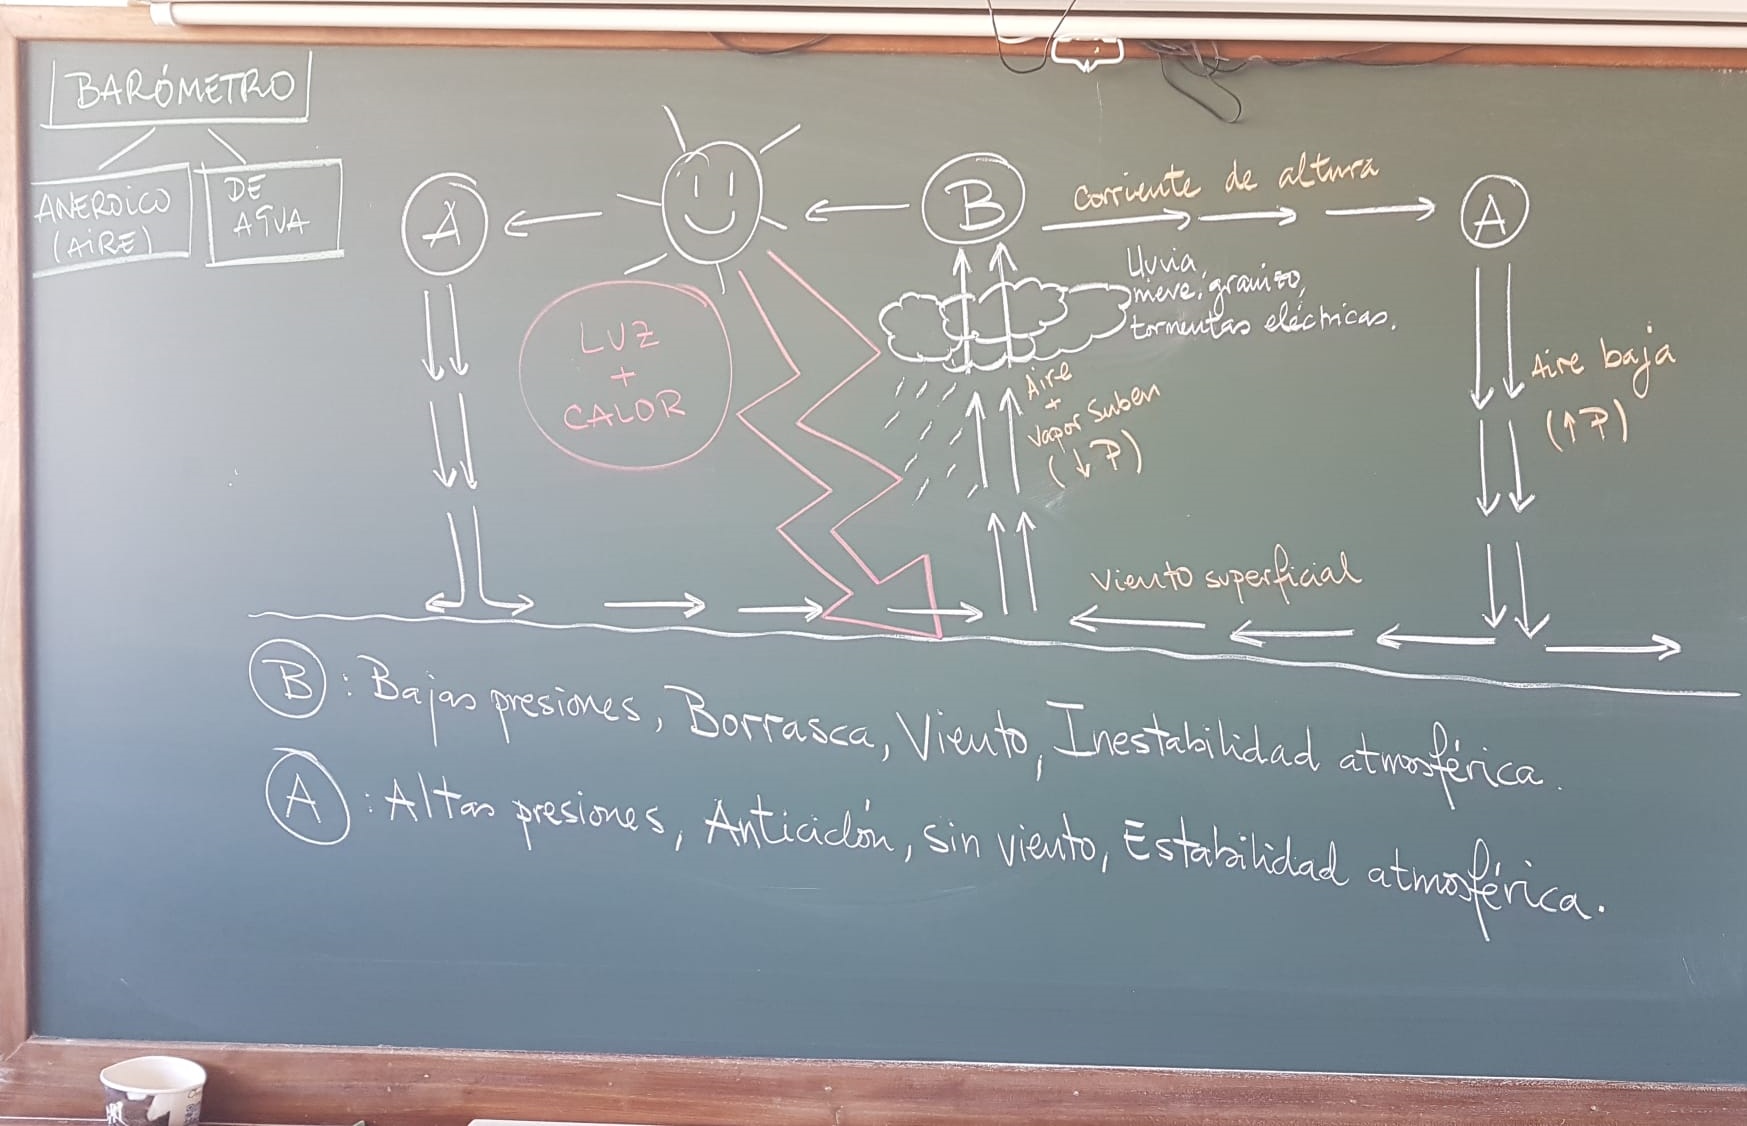 BARÓMETRO
ANEROICO
(AIRE)
DE
AGUA
A
B
Corriente de altura
A
LUZ
+
CALOR
Lluvia,
nieve, granizo,
tormentas eléctricas.
Aire
+
Vapor suben
(↓P)
Aire baja
(↑P)
Viento superficial
B : Bajas presiones, Borrasca, Viento, Inestabilidad atmosférica.
A : Altas presiones, Anticiclón, sin viento, Estabilidad atmosférica.